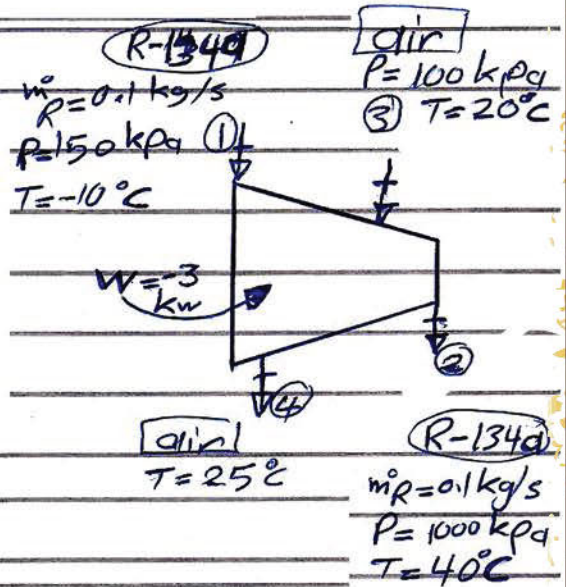 R-134a
ṁR=0.1 kg/s
P=150 kPa ①
T=-10°C
air
P=100 kPa
③ T=20°C
W=-3
kw
②
④
air
T=25°C
R-134a
ṁR=0.1 kg/s
P=1000 kPa
T=40°C